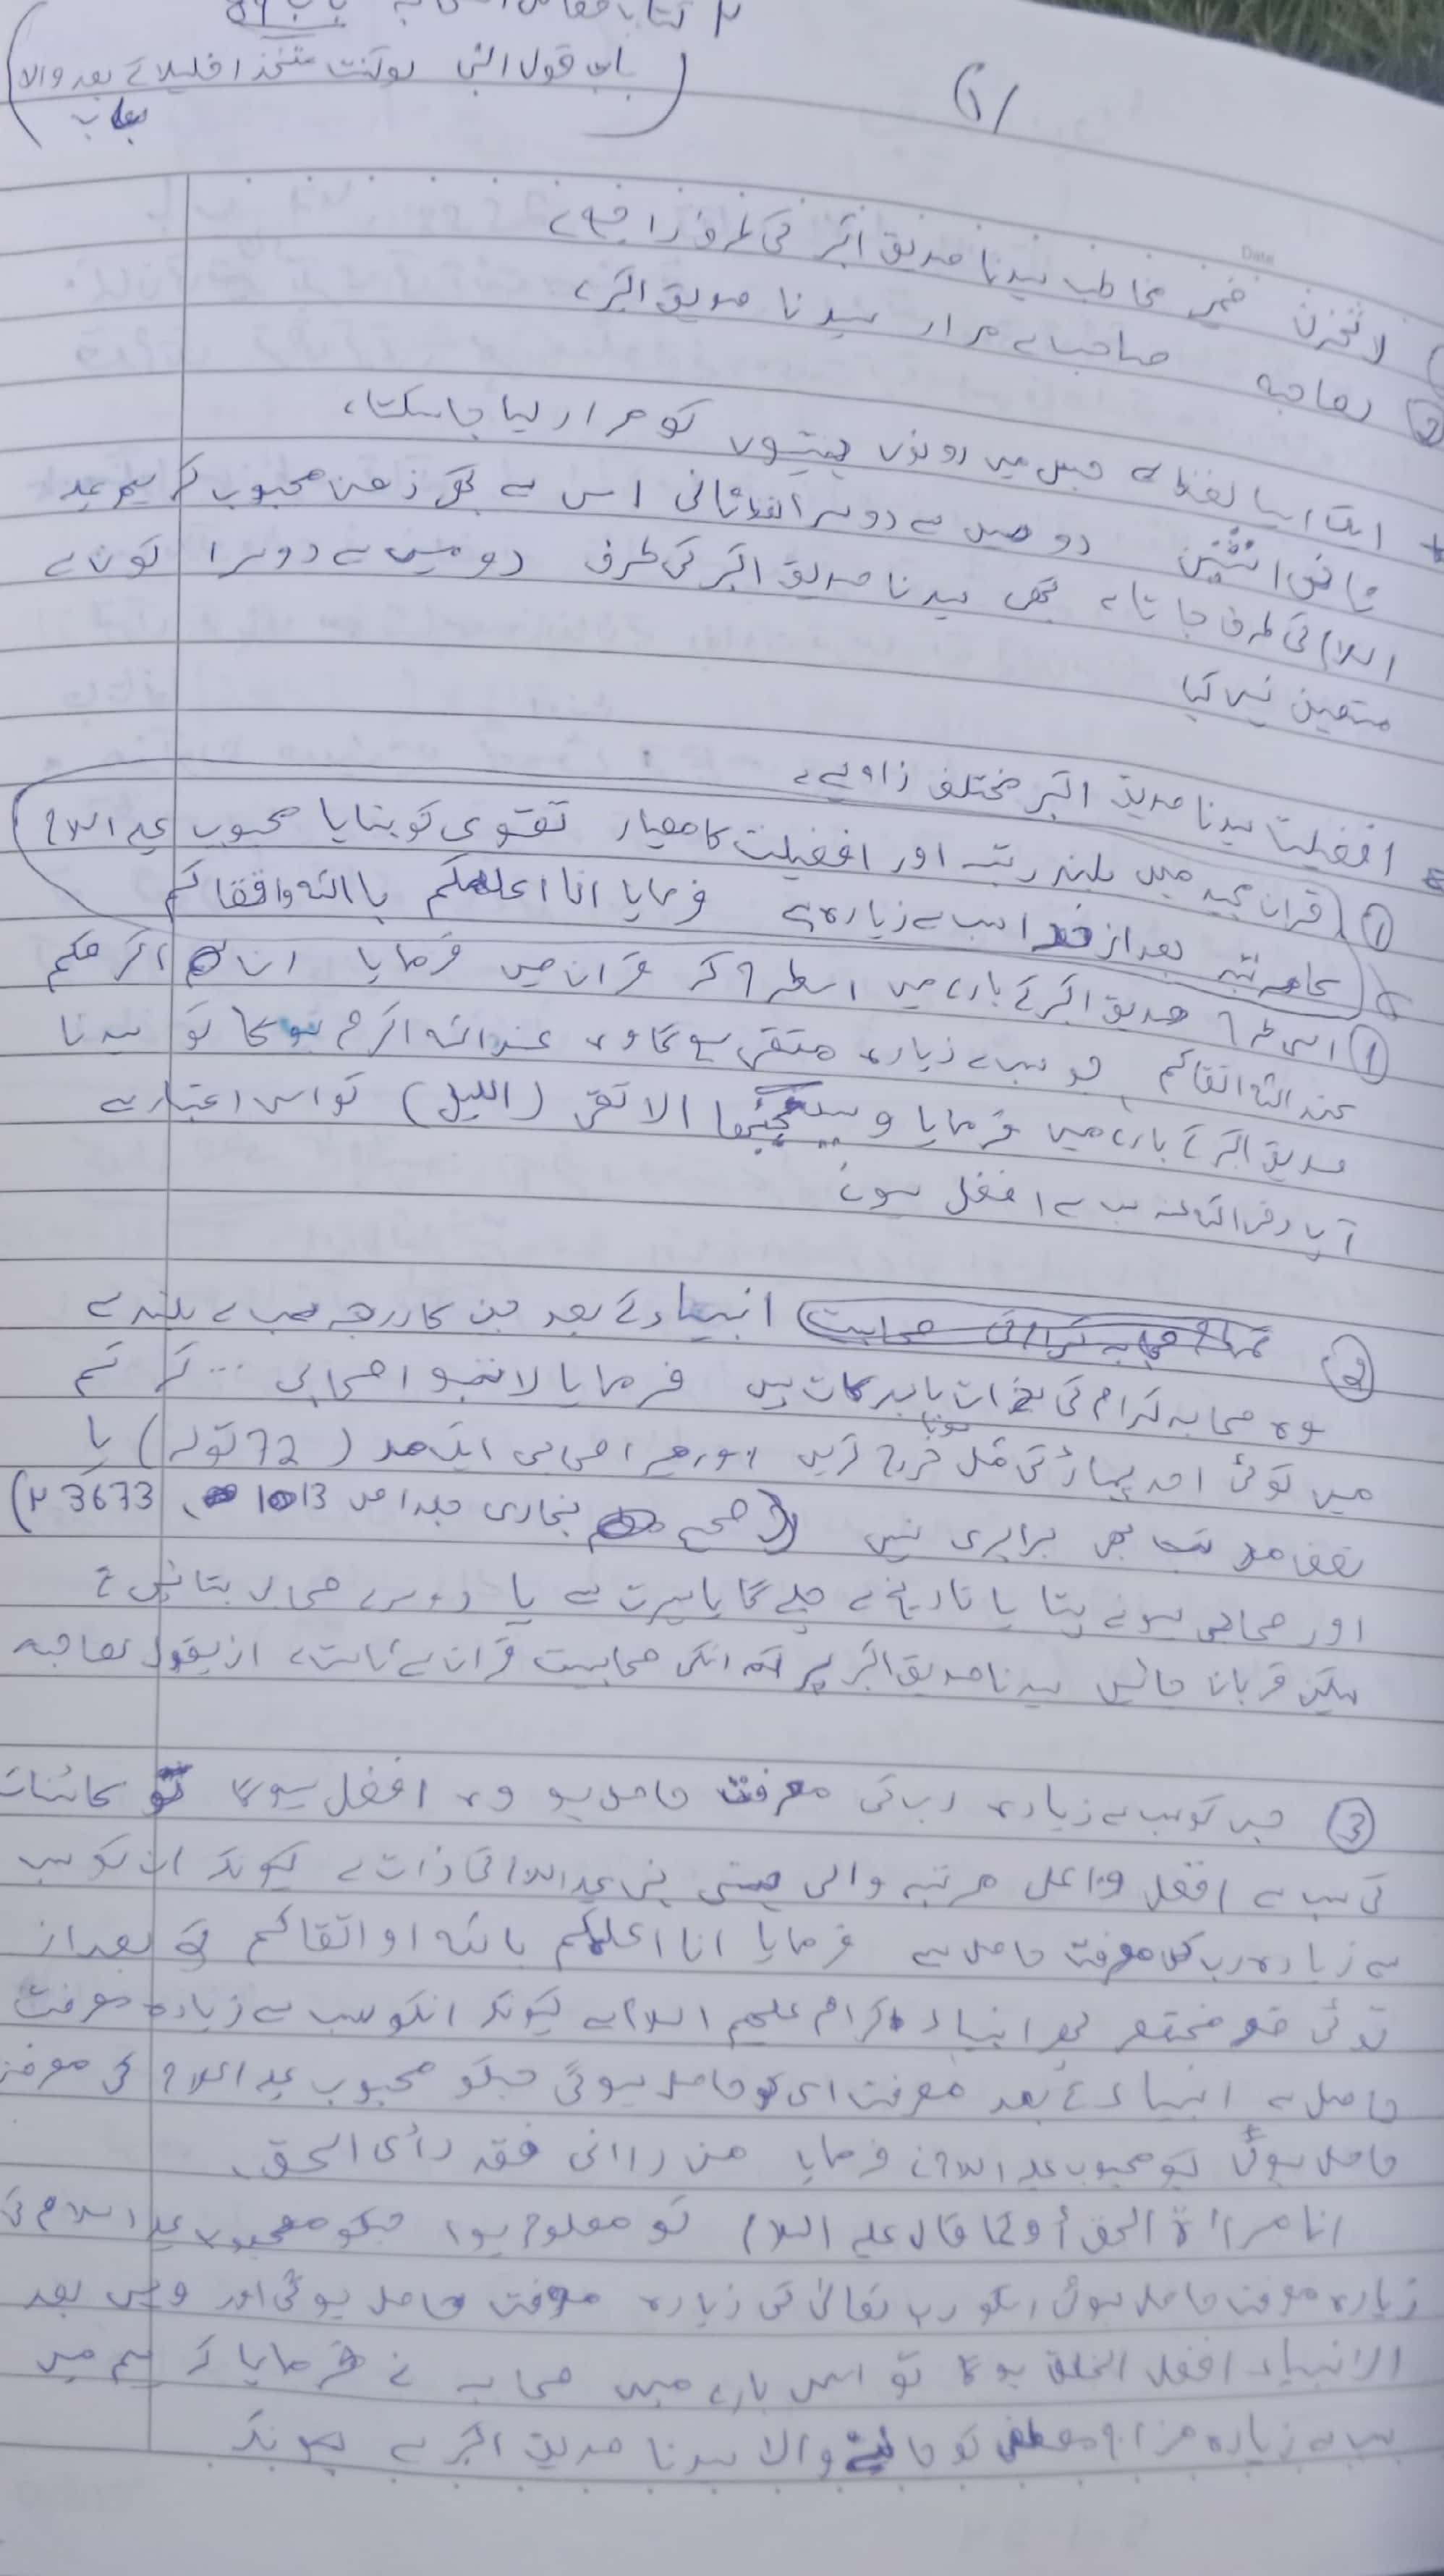 (باب قول النبی لوکنت متخذا خلیلا کے بعد والا
باب)
لا تحزن ضمیر مخاطب سیدنا صدیق اکبر کی طرف راجع ہے
② لصاحبہ صاحب سے مراد سیدنا صدیق اکبر،
ایک ایسا لفظ ہے جس میں دونوں ہستیوں کو مراد لیا جاسکتا،
ثانی اثنین دو میں سے دوسرا لفظ ثانی اس سے کبھی ذھن محبوب کریم علیہ
السلام کی طرف جاتا ہے کبھی سیدنا صدیق اکبر کی طرف دو میں سے دوسرا کون ہے
متعین نہیں کیا
افضلیت سیدنا صدیق اکبر مختلف زاویے،
① قران مجید میں بلند رتبہ اور افضیلت کا معیار تقوی کو بنایا محبوب علیہ السلام
کا مرتبہ بعد از خدا سب سے زیادہ ہے فرمایا انا اعلمکم با اللہ واتقاکم
① اسی طرح صدیق اکبر کے بارے میں اسطرح کہ قران میں فرمایا ان اکرمکم
عند اللہ اتقاکم جو سب سے زیادہ متقی ہو گا وہ عند اللہ اکرم ہوگا تو سیدنا
صدیق اکبر کے بارے میں فرمایا وسیجنبھا الاتقی (اللیل) تو اس اعتبار سے
آپ رضی اللہ عنہ سب سے افضل ہوئے
② تمام صحابہ کرام کی صحابیت انبیاء کے بعد جن کا درجہ سب سے بلند ہے
وہ صحابہ کرام کی ذات بابرکات ہیں فرمایا لا تسبو اصحابی ... کہ تم
میں کوئی احد پہاڑ کی مثل سونا خرچ کریں اور میرا صحابی ایک مد (72 تولہ) یا
نصف مد تب بھی برابری نہیں (صحیح بخاری جلد ا ص 1013، 3673)
اور صحابی ہونے پتا یا تاریخ سے چلے گا یا سیرت سے یا دوسرے صحابہ بتائیں گے
لیکن قربان جائیں سیدنا صدیق اکبر پر کہ انکی صحابیت قران سے ثابت ہے اذ یقول لصاحبہ
③ جس کو سب سے زیادہ رب کی معرفت حاصل ہو وہ افضل ہوگا تو کائنات
کی سب سے افضل و اعلی مرتبہ والی ہستی نبی علیہ السلام کی ذات ہے کیونکہ ان کو سب
سے زیادہ رب کی معرفت حاصل ہے فرمایا انا اعلمکم باللہ او اتقاکم بعد از
توئی قصہ مختصر پھر انبیاء کرام علیھم السلام ہے کیونکہ انکو سب سے زیادہ معرفت
حاصل ہے انبیاء کے بعد معرفت اسی کو حاصل ہوگی جسکو محبوب علیہ السلام کی معرفت
حاصل ہوگی کیونکہ محبوب علیہ السلام نے فرمایا من رانی فقد رأی الحق
انا مراۃ الحق أو کما قال علیہ السلام تو معلوم ہوا جسکو محبوب علیہ السلام کی
زیادہ معرفت حاصل ہوئی اسکو رب تعالی کی زیادہ معرفت حاصل ہوگی اور وہی بعد
الانبیاء افضل الخلق ہوگا تو اس بارے میں صحابہ نے فرمایا کہ ہم میں
سب سے زیادہ مزاج مصطفی کو جاننے والا سیدنا صدیق اکبر ہے کیونکہ